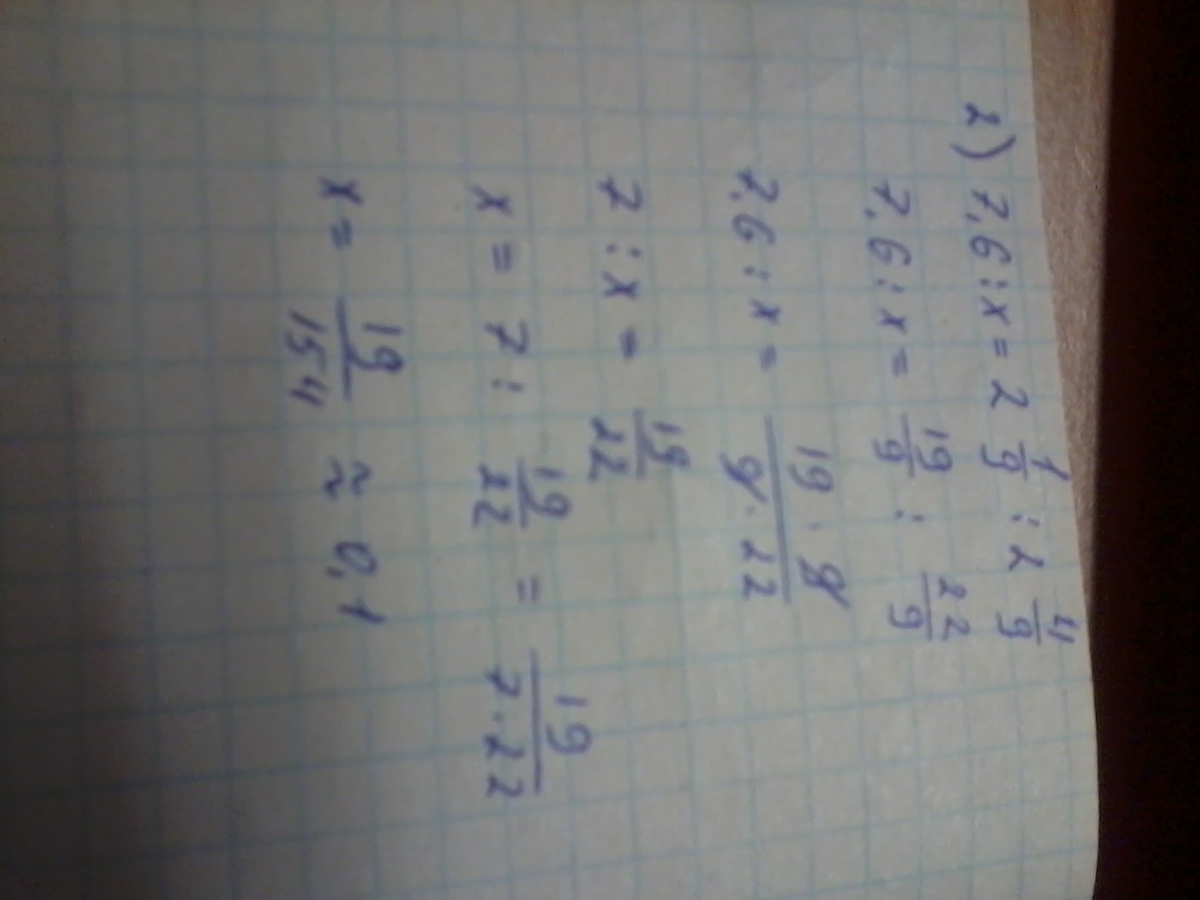 2) 7,6 : x = 2 1/9 : 2 4/9
7,6 : x = 19/9 : 22/9
7,6 : x = 19 · 9 / 9 · 22
7 : x = 19/22
x = 7 : 19/22 = 19 / 7 · 22
x = 19/154 ≈ 0,1